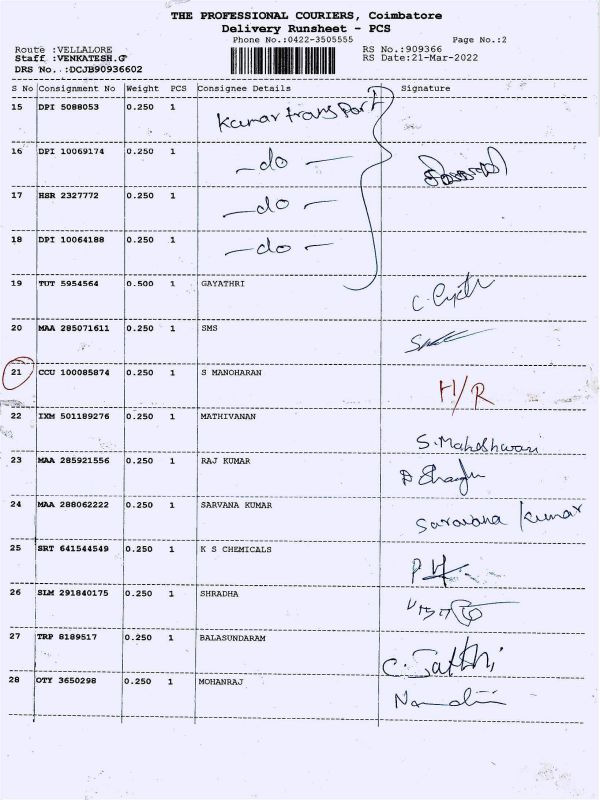 THE PROFESSIONAL COURIERS, Coimbatore
Delivery Runsheet - PCS
Phone No.:0422-3505555 Page No.:2
Route :VELLALORE RS No.:909366
Staff :VENKATESH.G RS Date:21-Mar-2022
DRS No. :DCJB90936602
S No Consignment No Weight PCS Consignee Details Signature
15 DPI 5088053 0.250 1 Kumar transport
16 DPI 10069174 0.250 1 -do-
17 HSR 2327772 0.250 1 -do-
18 DPI 10064188 0.250 1 -do-
19 TUT 5954564 0.500 1 GAYATHRI
20 MAA 285071611 0.250 1 SMS
21 CCU 100085874 0.250 1 S MANOHARAN H/R
22 IXM 501189276 0.250 1 MATHIVANAN S.Maheshwari
23 MAA 285921556 0.250 1 RAJ KUMAR
24 MAA 288062222 0.250 1 SARVANA KUMAR Saravana kumar
25 SRT 641544549 0.250 1 K S CHEMICALS
26 SLM 291840175 0.250 1 SHRADHA
27 TRP 8189517 0.250 1 BALASUNDARAM C. Sathi
28 OTY 3650298 0.250 1 MOHANRAJ